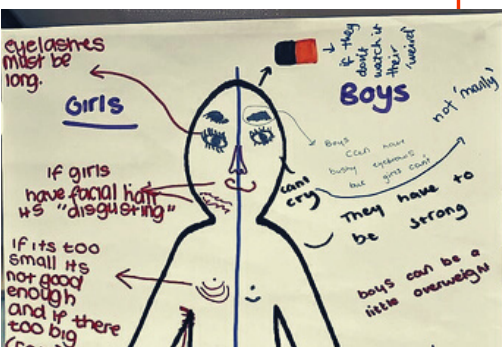 eyelashes
must be
long.
Girls
if girls
have facial hair
its "disgusting"
if its too
small its
not good
enough
and if there
too big
if they
don't
watch it
their
'weird'
Boys
not 'manly'
Boys
can have
bushy eyebrows
but girls can't
cant
cry
They have to
be strong
boys can be a
little overweight